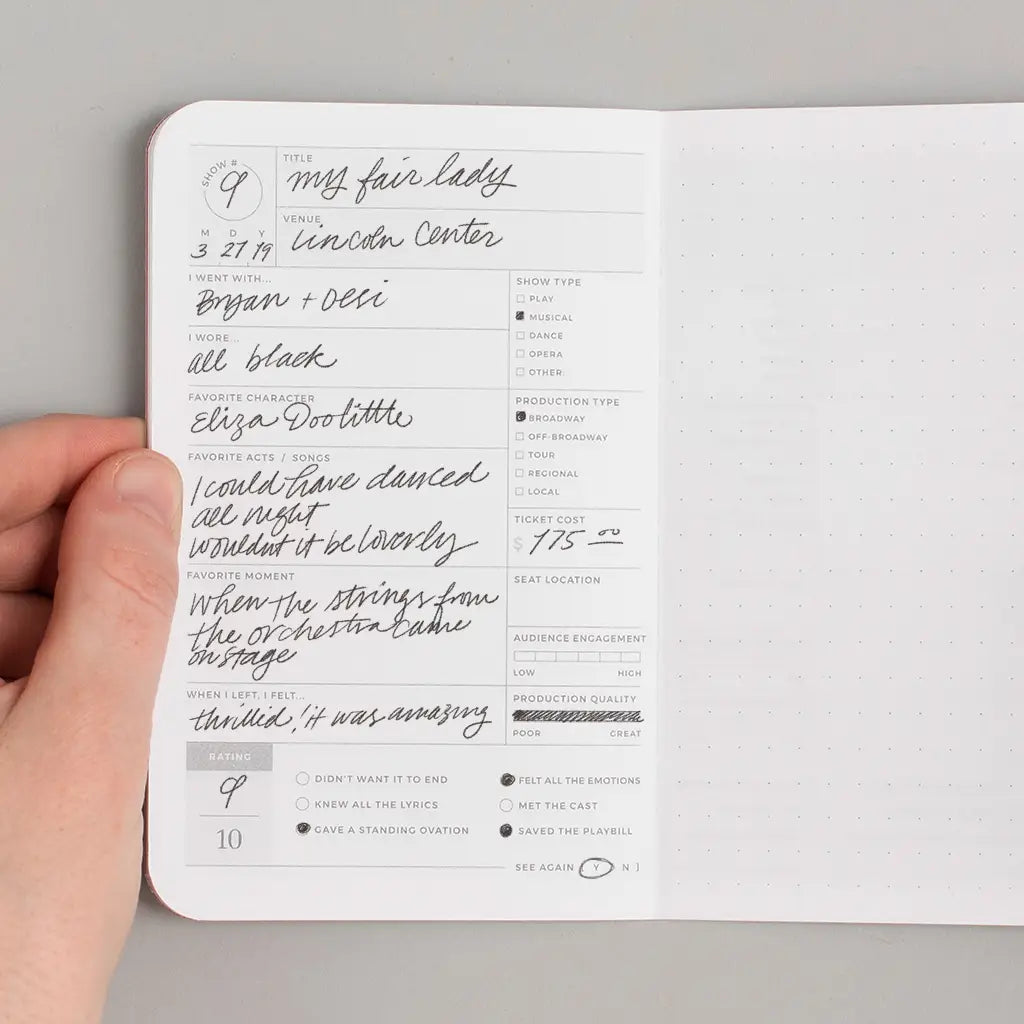 SHOW #
9
M D Y
3 27 19
TITLE
my fair lady
VENUE
Lincoln Center
I WENT WITH...
Bryan + Desi
I WORE...
all black
FAVORITE CHARACTER
Eliza Doolittle
FAVORITE ACTS / SONGS
I could have danced
all night
wouldn't it be loverly
FAVORITE MOMENT
When the strings from
the orchestra came
on stage
WHEN I LEFT, I FELT...
thrilled! it was amazing
SHOW TYPE
PLAY
MUSICAL
DANCE
OPERA
OTHER:
PRODUCTION TYPE
BROADWAY
OFF-BROADWAY
TOUR
REGIONAL
LOCAL
TICKET COST
$ 175 00
SEAT LOCATION
AUDIENCE ENGAGEMENT
LOW HIGH
PRODUCTION QUALITY
POOR GREAT
RATING
9
10
DIDN'T WANT IT TO END
KNEW ALL THE LYRICS
GAVE A STANDING OVATION
FELT ALL THE EMOTIONS
MET THE CAST
SAVED THE PLAYBILL
SEE AGAIN [ Y N ]